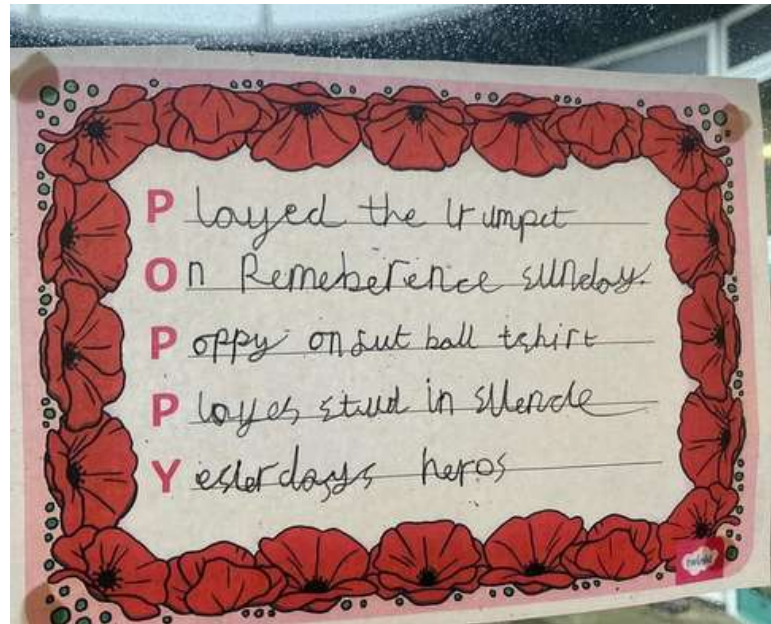 Played the trumpet
On Remeberence sunday.
Poppy on fut ball tshirt
Playes stud in silence
Yesterdays heros
twinkl